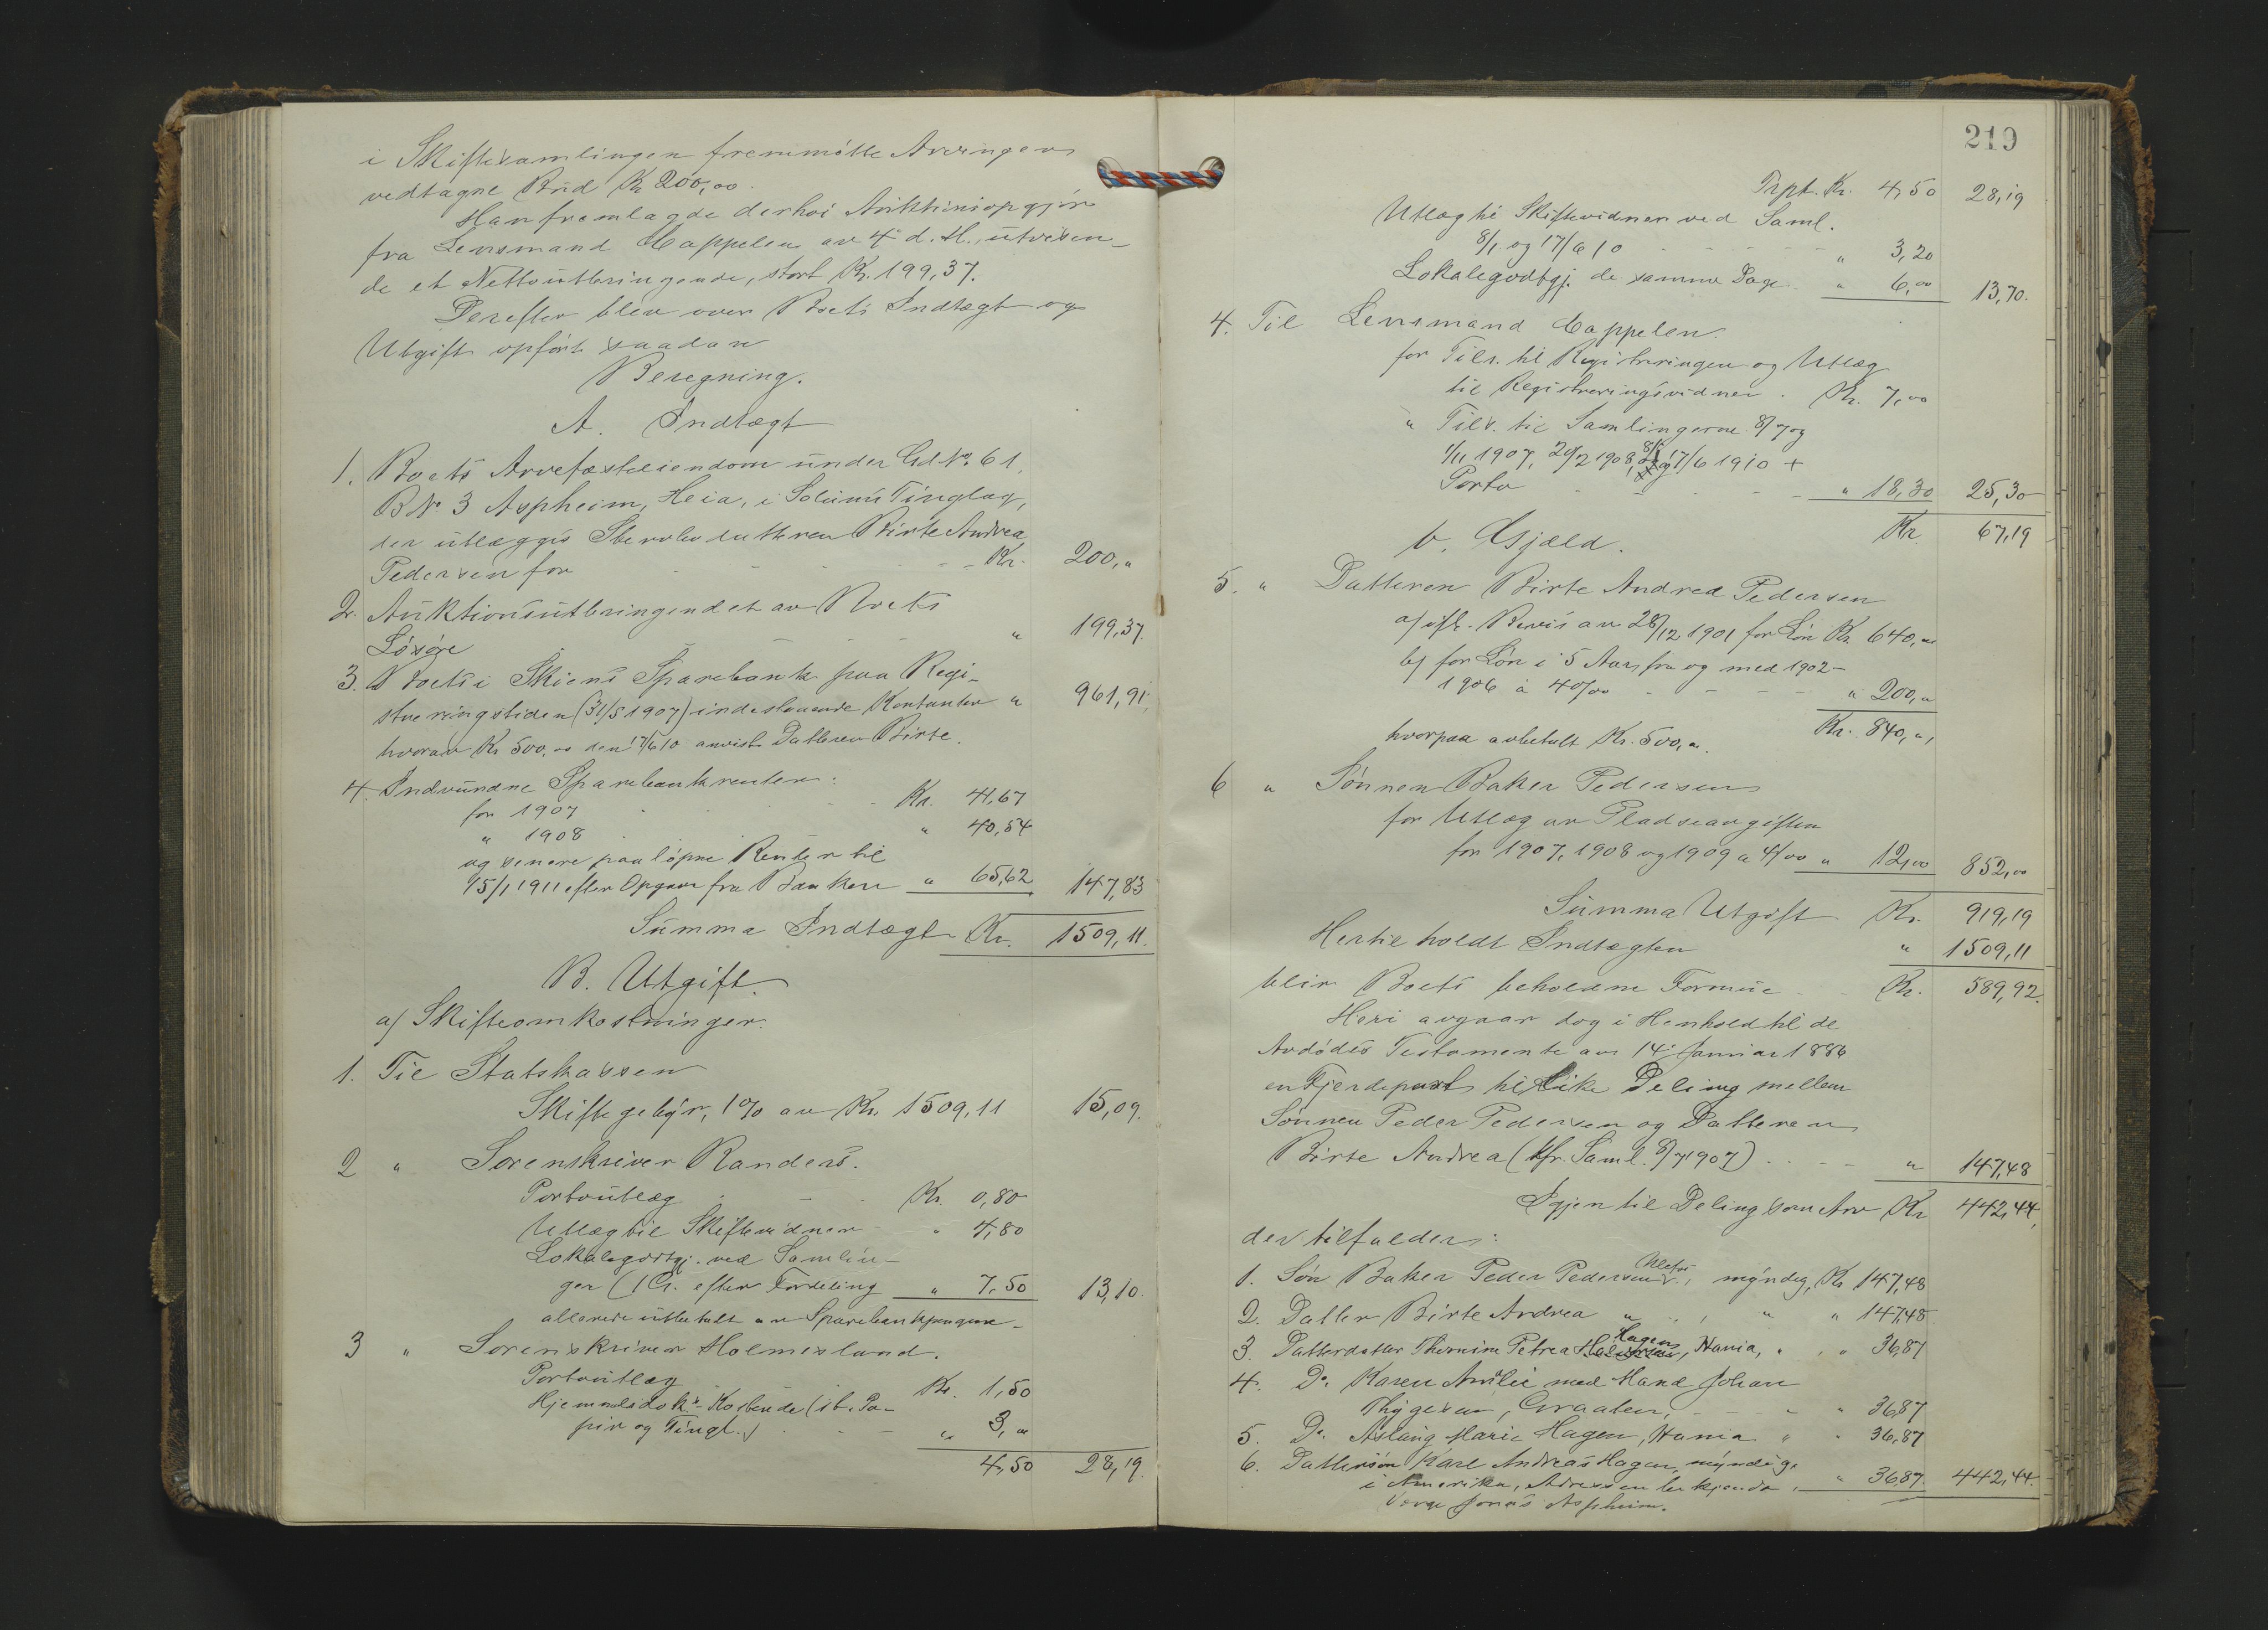 i Skiftesamlingen fremmötte Arvinger
vedtagne Bud Kr 200,00.
Han fremlagde derhos Auktionsopgjör
fra Lensmand Cappelen av 4de d. M., utvisen-
de et Nettoutbringende, stort Kr. 199,37.
Derefter blev over Boets Indtægt og
Utgift opfört saadan
Beregning.
A. Indtægt
1. Boets Arvefæsteeiendom under Gd No. 61,
B No. 3 Aspheim, Heia, i Solum Tinglag,
der utlægges Stervbodatteren Birte Andrea
Pedersen for - - - Kr. 200,"
2. Auktionsutbringendet av Boets
Lösöre - - - " 199,37.
3. Boets i Skiens Sparebank paa Regi-
streringstiden (31/5 1907) indestaaende Kontanter " 961,91,
hvorav Kr 500,00 den 17/6 10 anvist Datteren Birte.
4. Indvundne Sparebankrenter:
for 1907 - - Kr. 41,67
" 1908 " 40,54
og senere paalöpne Renter til
15/1 1911 efter Opgave fra Banken " 65,62 147,83
Summa Indtægt Kr. 1509,11.
B. Utgift.
a/ Skifteomkostninger.
1. Til Statskassen
Skiftegebyr, 1% av Kr. 1509,11 15,09.
2 " Sorenskriver Randers.
Portoutlæg - Kr. 0,80
Utlæg til Skiftevidner - " 4,80
Lokalegodtgj. ved Samlin-
ger (1 Gr. efter Fordeling " 7,50 13,10.
allerede utbetalt av Sparebankpengene -
3 " Sorenskriver Holmesland.
Portoutlæg Kr. 1,50
Hjemmelsdok.s Kostende (st. Pa-
pir og Tingl.) - - " 3,"
4,50 28,19.
219
Trpt. Kr. 4,50 28,19
Utlæg til Skiftevidner ved Saml.
8/1 og 17/6 10 - - - " 3,20
Lokalegodtgj. de samme Dage " 6,00 13,70.
4. Til Lensmand Cappelen.
for Tilv. til Registreringen og Utlæg
til Registreringsvidner . Kr. 7,00
" Tilv. til Samlingerne 8/7 og
1/11 1907, 20/2 1908, 8/1 og 17/6 1910 +
Porto - - - " 18,30 25,30
Kr. 67,19
b. Gjæld.
5. " Datteren Birte Andrea Pedersen
a/ iflg. Bevis av 28/12 1901 for Lön Kr 640,"
b/ for Lön i 5 Aar, fra og med 1902-
1906 à 40/00 - - - " 200,"
Kr. 840,",
hvorpaa avbetalt Kr. 500,".
6 " Sönnen Baker Pedersen
for Utlæg av Pladseavgiften
for 1907, 1908 og 1909 à 4/00 " 12,00 852,00
Summa Utgift Kr. 919,19
Hertil holdt Indtægten " 1509,11
blir Boets beholdne Formue Kr. 589,92.
Heri avgaar dog i Henhold til de
Avdödes Testamente av 14de Januar 1886
en Fjerdepart til Like Deling mellem
Sönnen Peder Pedersen og Datteren
Birte Andrea (kfr. Saml. 8/7 1907) . - - " 147,48
Igjen til Deling som Arv Kr 442,44,
der tilfalder:
1. Sön Baker Peder Pedersen, Ulefos, myndig, Kr 147,48
2. Datter Birte Andrea " " " 147,48
3. Datterdatter Thomine Petrea Hagen, Hania, " " 36,87
4. Do. Karen Amilie med Mand Johan
Thygesen, Graaten, - - " " 36,87
5. Do. Aslaug Marie Hagen, Hania " " 36,87
6. Dattersön Karl Andreas Hagen, myndig,
i Amerika, Adressen bekjendt, " 36,87. 442,44.
Verge Jonas Aspheim.